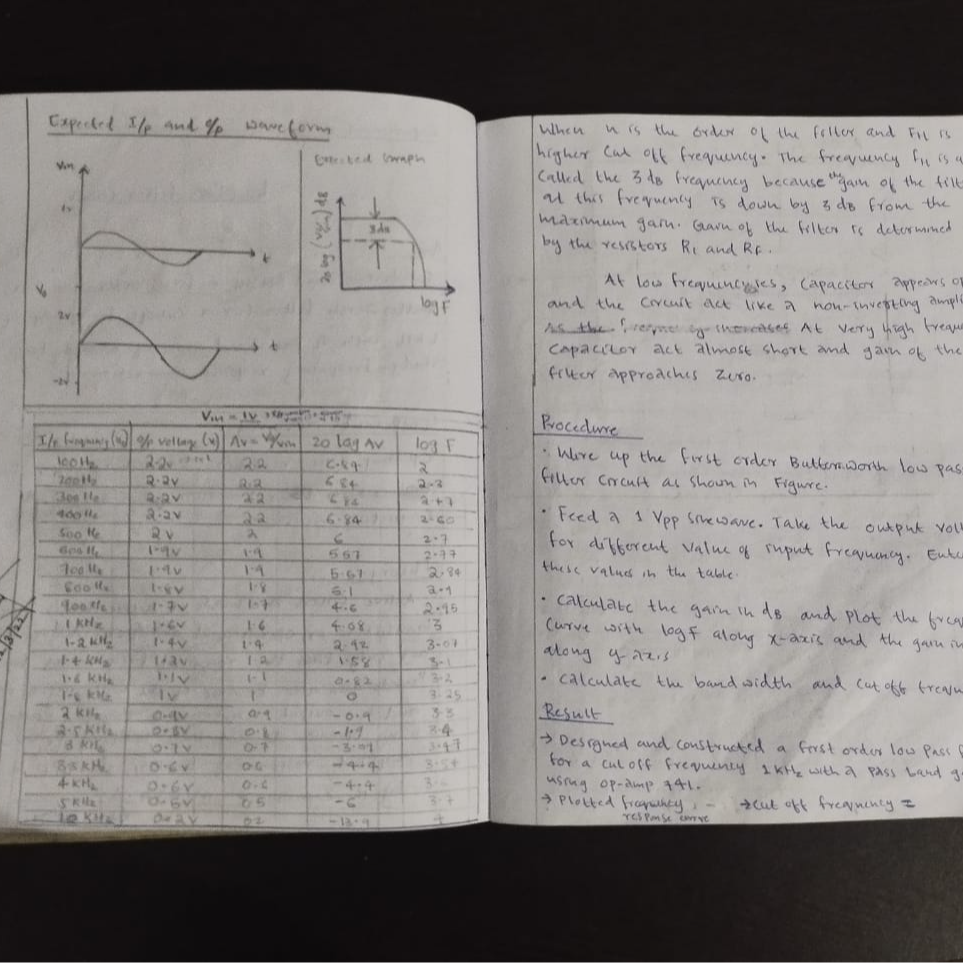 Expected I/p and o/p waveform
Vin
1v
t
Vo
2v
t
-2v
Expected Graph
20 log (Vo/Vin) dB
3dB
log F
Vin = 1V
I/p frequency (Hz) o/p voltage (v) Av = Vo/Vin 20 log Av log F
100 Hz 2.2v 2.2 6.84 2
200 Hz 2.2V 2.2 6.84 2.3
300 Hz 2.2V 2.2 6.84 2.47
400 Hz 2.2V 2.2 6.84 2.60
500 Hz 2V 2 6 2.7
600 Hz 1.9V 1.9 5.57 2.77
700 Hz 1.9V 1.9 5.57 2.84
800 Hz 1.8V 1.8 5.1 2.9
900 Hz 1.7V 1.7 4.6 2.95
1 KHz 1.6V 1.6 4.08 3
1.2 KHz 1.4V 1.4 2.92 3.07
1.4 KHz 1.2 1.58 3.1
1.6 KHz 1.1V 1.1 0.82 3.2
1.8 KHz 1V 1 0 3.25
2 KHz 0.9V 0.9 -0.9 3.3
2.5 KHz 0.8V 0.8 -1.9 3.4
3 KHz 0.7V 0.7 -3.09 3.47
0.6V 0.6 -4.4 3.54
4 KHz 0.6V 0.6 -4.4
5 KHz 0.5 -6 3.7
10 KHz 0.2V 0.2 -13.9 4
When n is the order of the filter and FH is
higher cut off frequency. The frequency fH is a
Called the 3 dB frequency because the gain of the filt
at this frequency is down by 3 dB from the
maximum gain. Gain of the filter is determined
by the resistors R1 and RF.
At low frequencyses, Capacitor appears o
and the circuit act like a non-inverting ampli
As the increases At very high frequ
Capacitor act almost short and gain of the
filter approaches zero.
Procedure
• Wire up the first order Butterworth low pas
filter circuit as shown in Figure.
• Feed a 1 Vpp sinewave. Take the output vol
for different value of input frequency. Ente
these values in the table.
• Calculate the gain in dB and plot the freq
Curve with log f along x-axis and the gain in
along y-axis
• Calculate the bandwidth and cut off frequ
Result
→ Designed and constructed a first order low pass f
for a cut off frequency 1 KHz with a pass band g
using op-amp 741.
→ Plotted frequency response curve - → cut off frequency =